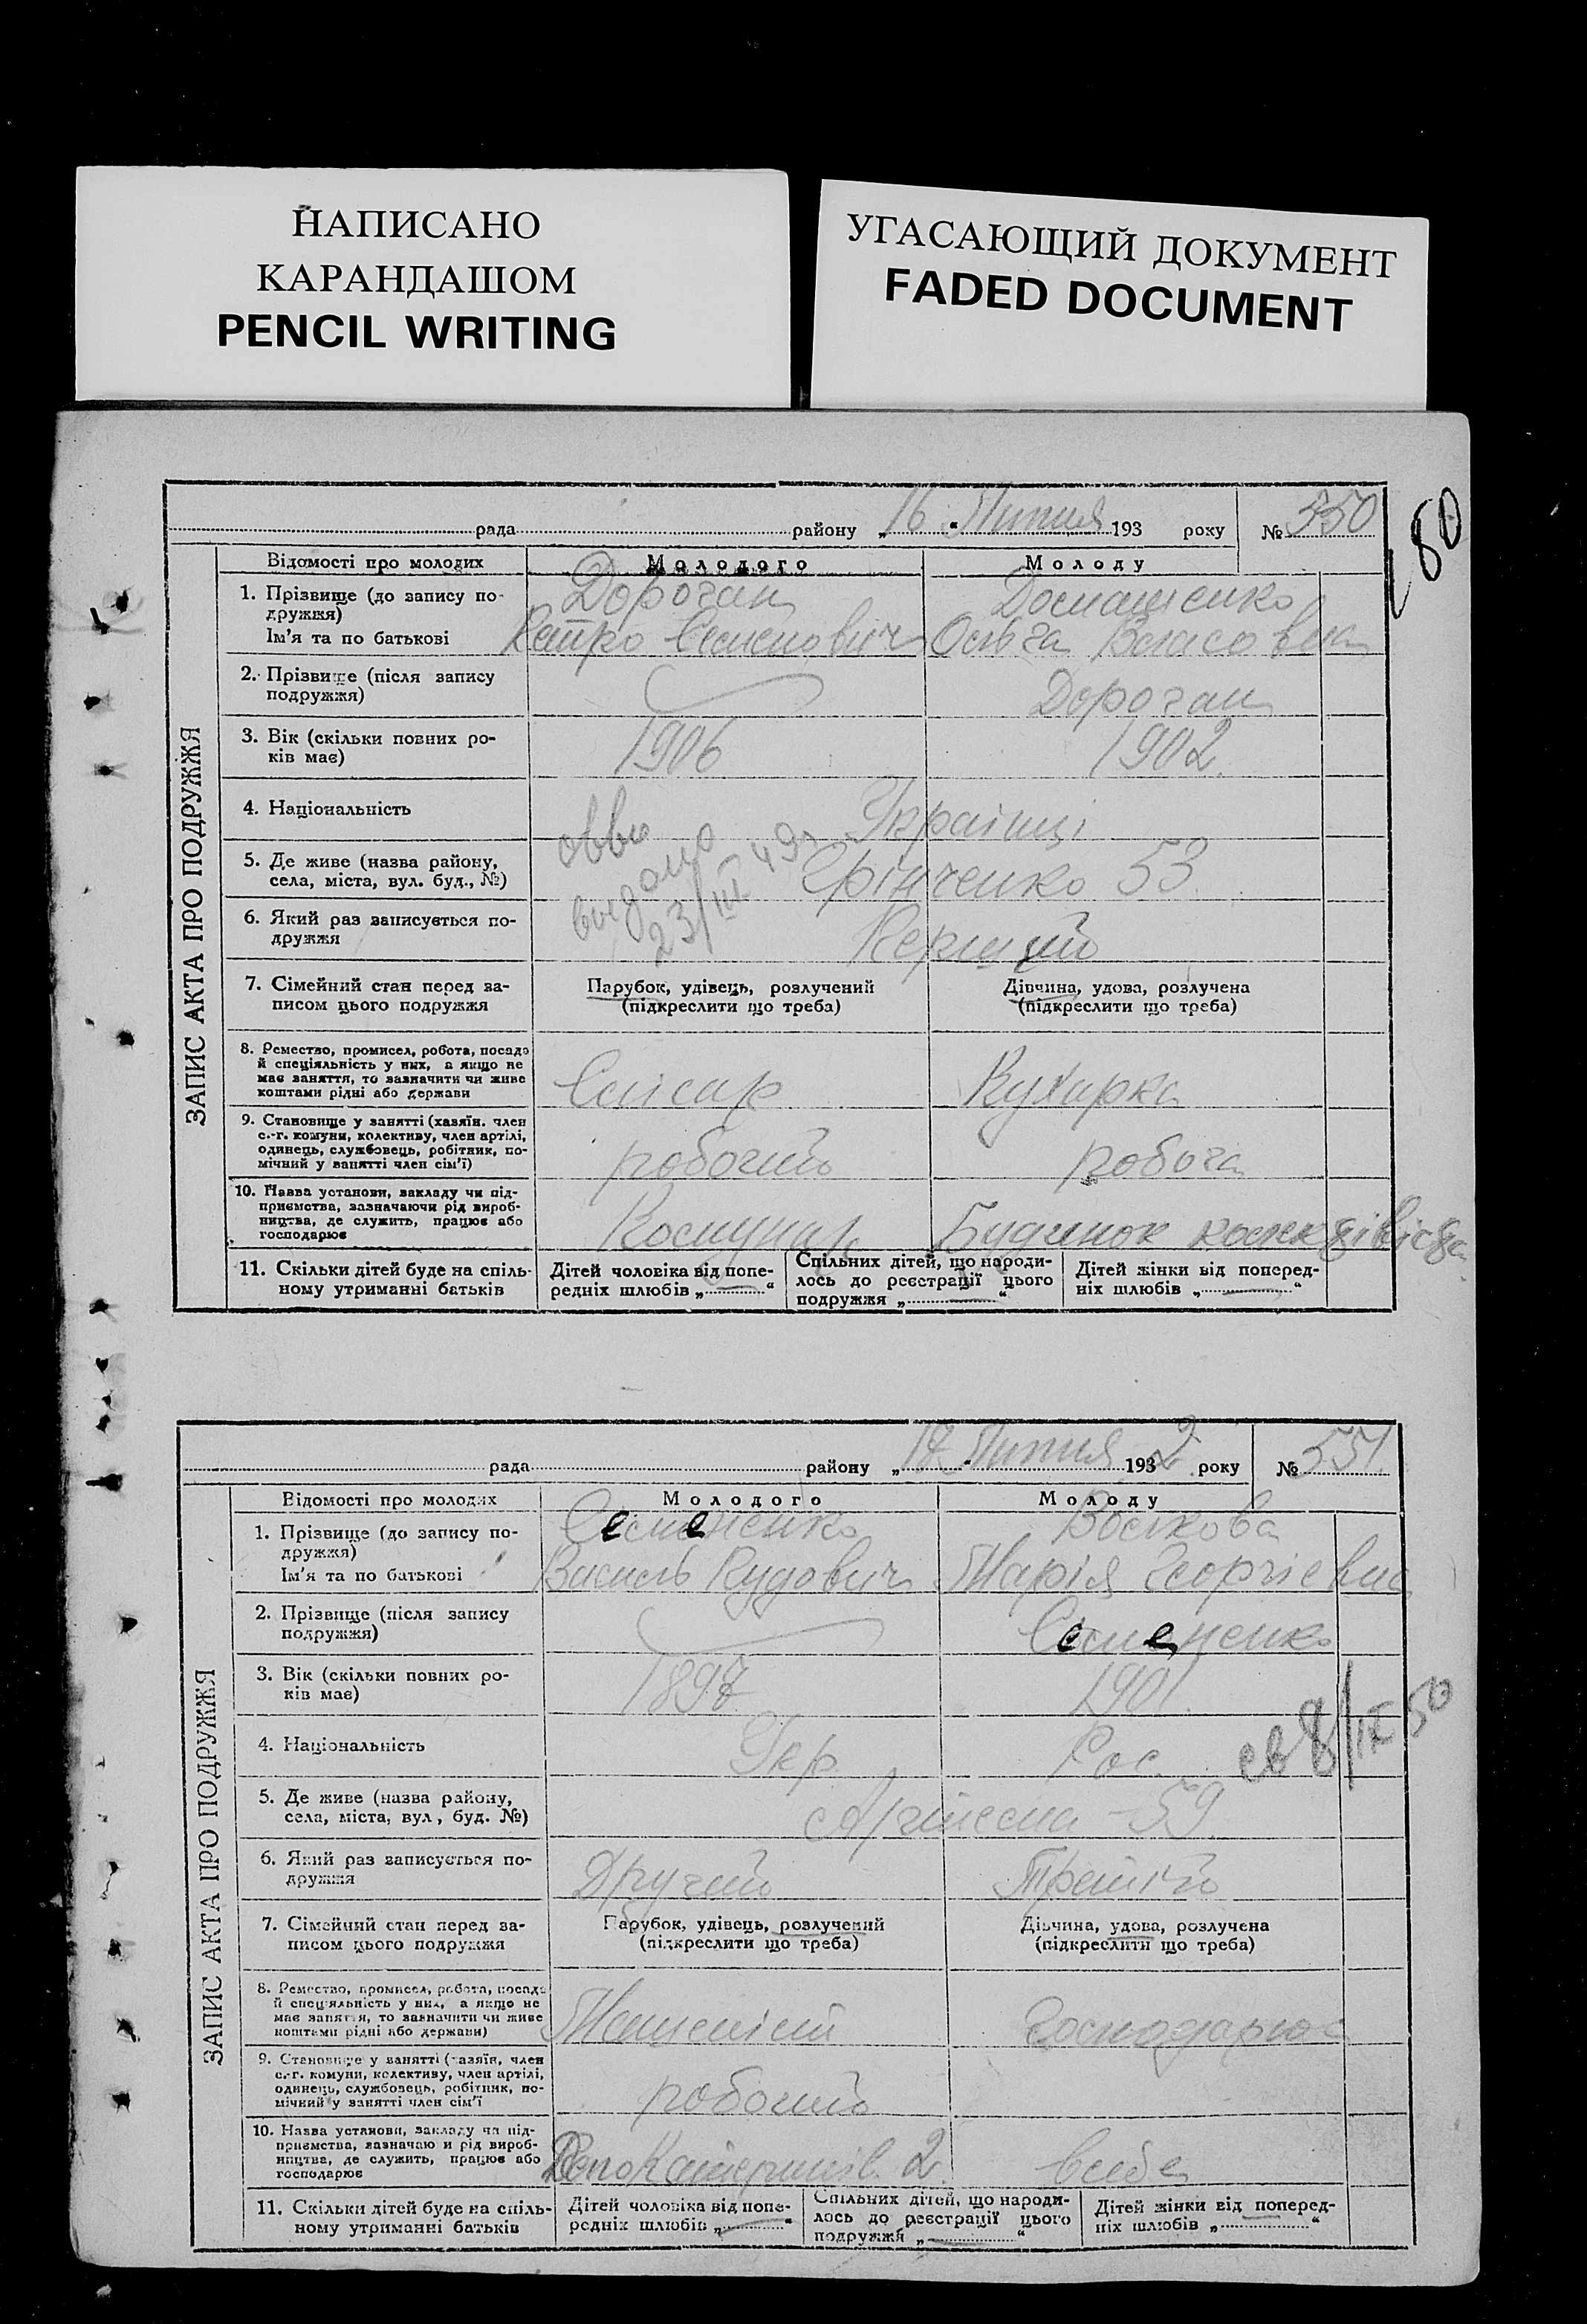 НАПИСАНО
КАРАНДАШОМ
PENCIL WRITING
УГАСАЮЩИЙ ДОКУМЕНТ
FADED DOCUMENT
80
рада району „16“ Липня 193 року № 550
ЗАПИС АКТА ПРО ПОДРУЖЖЯ
Відомості про молодих
Молодого
Молоду
1. Прізвище (до запису по-
дружжя)
Ім'я та по батькові
Дороган
Петро Семенович
Домашенко
Ольга Власовна
2. Прізвище (після запису
подружжя)
Дороган
3. Вік (скільки повних ро-
ків має)
1906
1902
4. Національність
Українці
5. Де живе (назва району,
села, міста, вул. буд., №)
Грінченко 53
видано
23/III 49
6. Який раз записується по-
дружжя
Перший
7. Сімейний стан перед за-
писом цього подружжя
Парубок, удівець, розлучений
(підкреслити що треба)
Дівчина, удова, розлучена
(підкреслити що треба)
8. Ремество, промисел, робота, посада
й спеціяльність у них, а якщо не
має заняття, то зазначити чи живе
коштами рідні або держави
Слісар
Кухарка
9. Становище у занятті (хазяїн. член
с.-г. комуни, колективу, член артілі,
одинець, службовець, робітник, по-
мічний у занятті член сім'ї)
робочий
робоча
10. Назва установи, закладу чи під-
приємства, зазначаючи рід вироб-
ництва, де служить, працює або
господарює
Комунар
Будинок
11. Скільки дітей буде на спіль-
ному утриманні батьків
Дітей чоловіка від попе-
редніх шлюбів „ “
Спільних дітей, що народи-
лось до реєстрації цього
подружжя „ “
Дітей жінки від поперед-
ніх шлюбів „ “
рада району „17“ Липня 1932 року № 551
ЗАПИС АКТА ПРО ПОДРУЖЖЯ
Відомості про молодих
Молодого
Молоду
1. Прізвище (до запису по-
дружжя)
Ім'я та по батькові
Семененко
Василь
Марія Георгіевна
2. Прізвище (після запису
подружжя)
Семененко
3. Вік (скільки повних ро-
ків має)
1897
1901
4. Національність
Укр
Рос.
св 8/IX 50
5. Де живе (назва району,
села, міста, вул, буд. №)
59
6. Який раз записується по-
дружжя
Другий
Третій
7. Сімейний стан перед за-
писом цього подружжя
Парубок, удівець, розлучений
(підкреслити що треба)
Дівчина, удова, розлучена
(підкреслити що треба)
8. Ремество, промисел, робота, посада
й спеціяльність у них, а якщо не
має заняття, то зазначити чи живе
коштами рідні або держави)
Машиніст
Господарює
9. Становище у занятті (хазяїн, член
с.-г. комуни, колективу, член артілі,
одинець, службовець, робітник, по-
мічний у занятті член сім'ї
робочий
10. Назва установи, закладу чи під-
приємства, зазначаючи рід вироб-
ництва, де служить, працює або
господарює
Депо 2
в себе
11. Скільки дітей буде на спіль-
ному утриманні батьків
Дітей чоловіка від попе-
редніх шлюбів „ “
Спільних дітей, що народи-
лось до реєстрації цього
подружжя „ “
Дітей жінки від поперед-
ніх шлюбів „ “